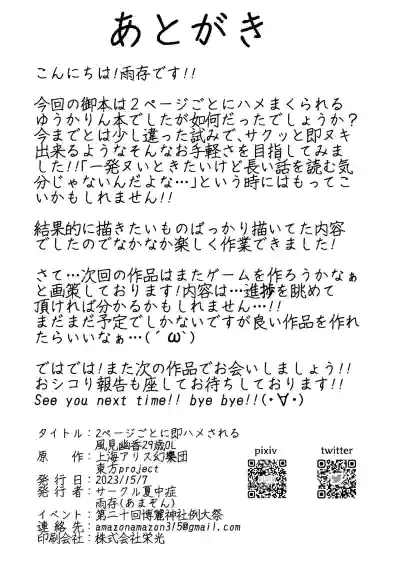 あとがき
こんにちは!雨存です!!
今回の御本は2ページごとにハメまくられる
ゆうかりん本でしたが如何だったでしょうか？
今までとは少し違った試みで、サクッと即ヌキ
出来るようなそんなお手軽さを目指してみま
した!!「一発ヌいときたいけど長い話を読む気
分じゃないんだよな…」という時にはもってこ
いかもしれません!!
結果的に描きたいものばっかり描いてた内容
でしたのでなかなか楽しく作業できました!
さて…次回の作品はまたゲームを作ろうかなぁ
と画策しております!内容は…進捗を眺めて
頂ければ分かるかもしれません…!!
まだまだ予定でしかないですが良い作品を作れ
たらいいなぁ…(´ω`)
ではでは!また次の作品でお会いしましょう!!
おシコり報告も座してお待ちしております!!
See you next time!! bye bye!!(・∀・)
タイトル：2ページごとに即ハメされる
風見幽香29歳OL
原作：上海アリス幻樂団
東方project
発行日：2023/15/7
発行者：サークル夏中症
雨存(あまぞん)
イベント：第二十回博麗神社例大祭
連絡先：amazonamazon315@gmail.com
印刷会社：株式会社栄光
pixiv
twitter